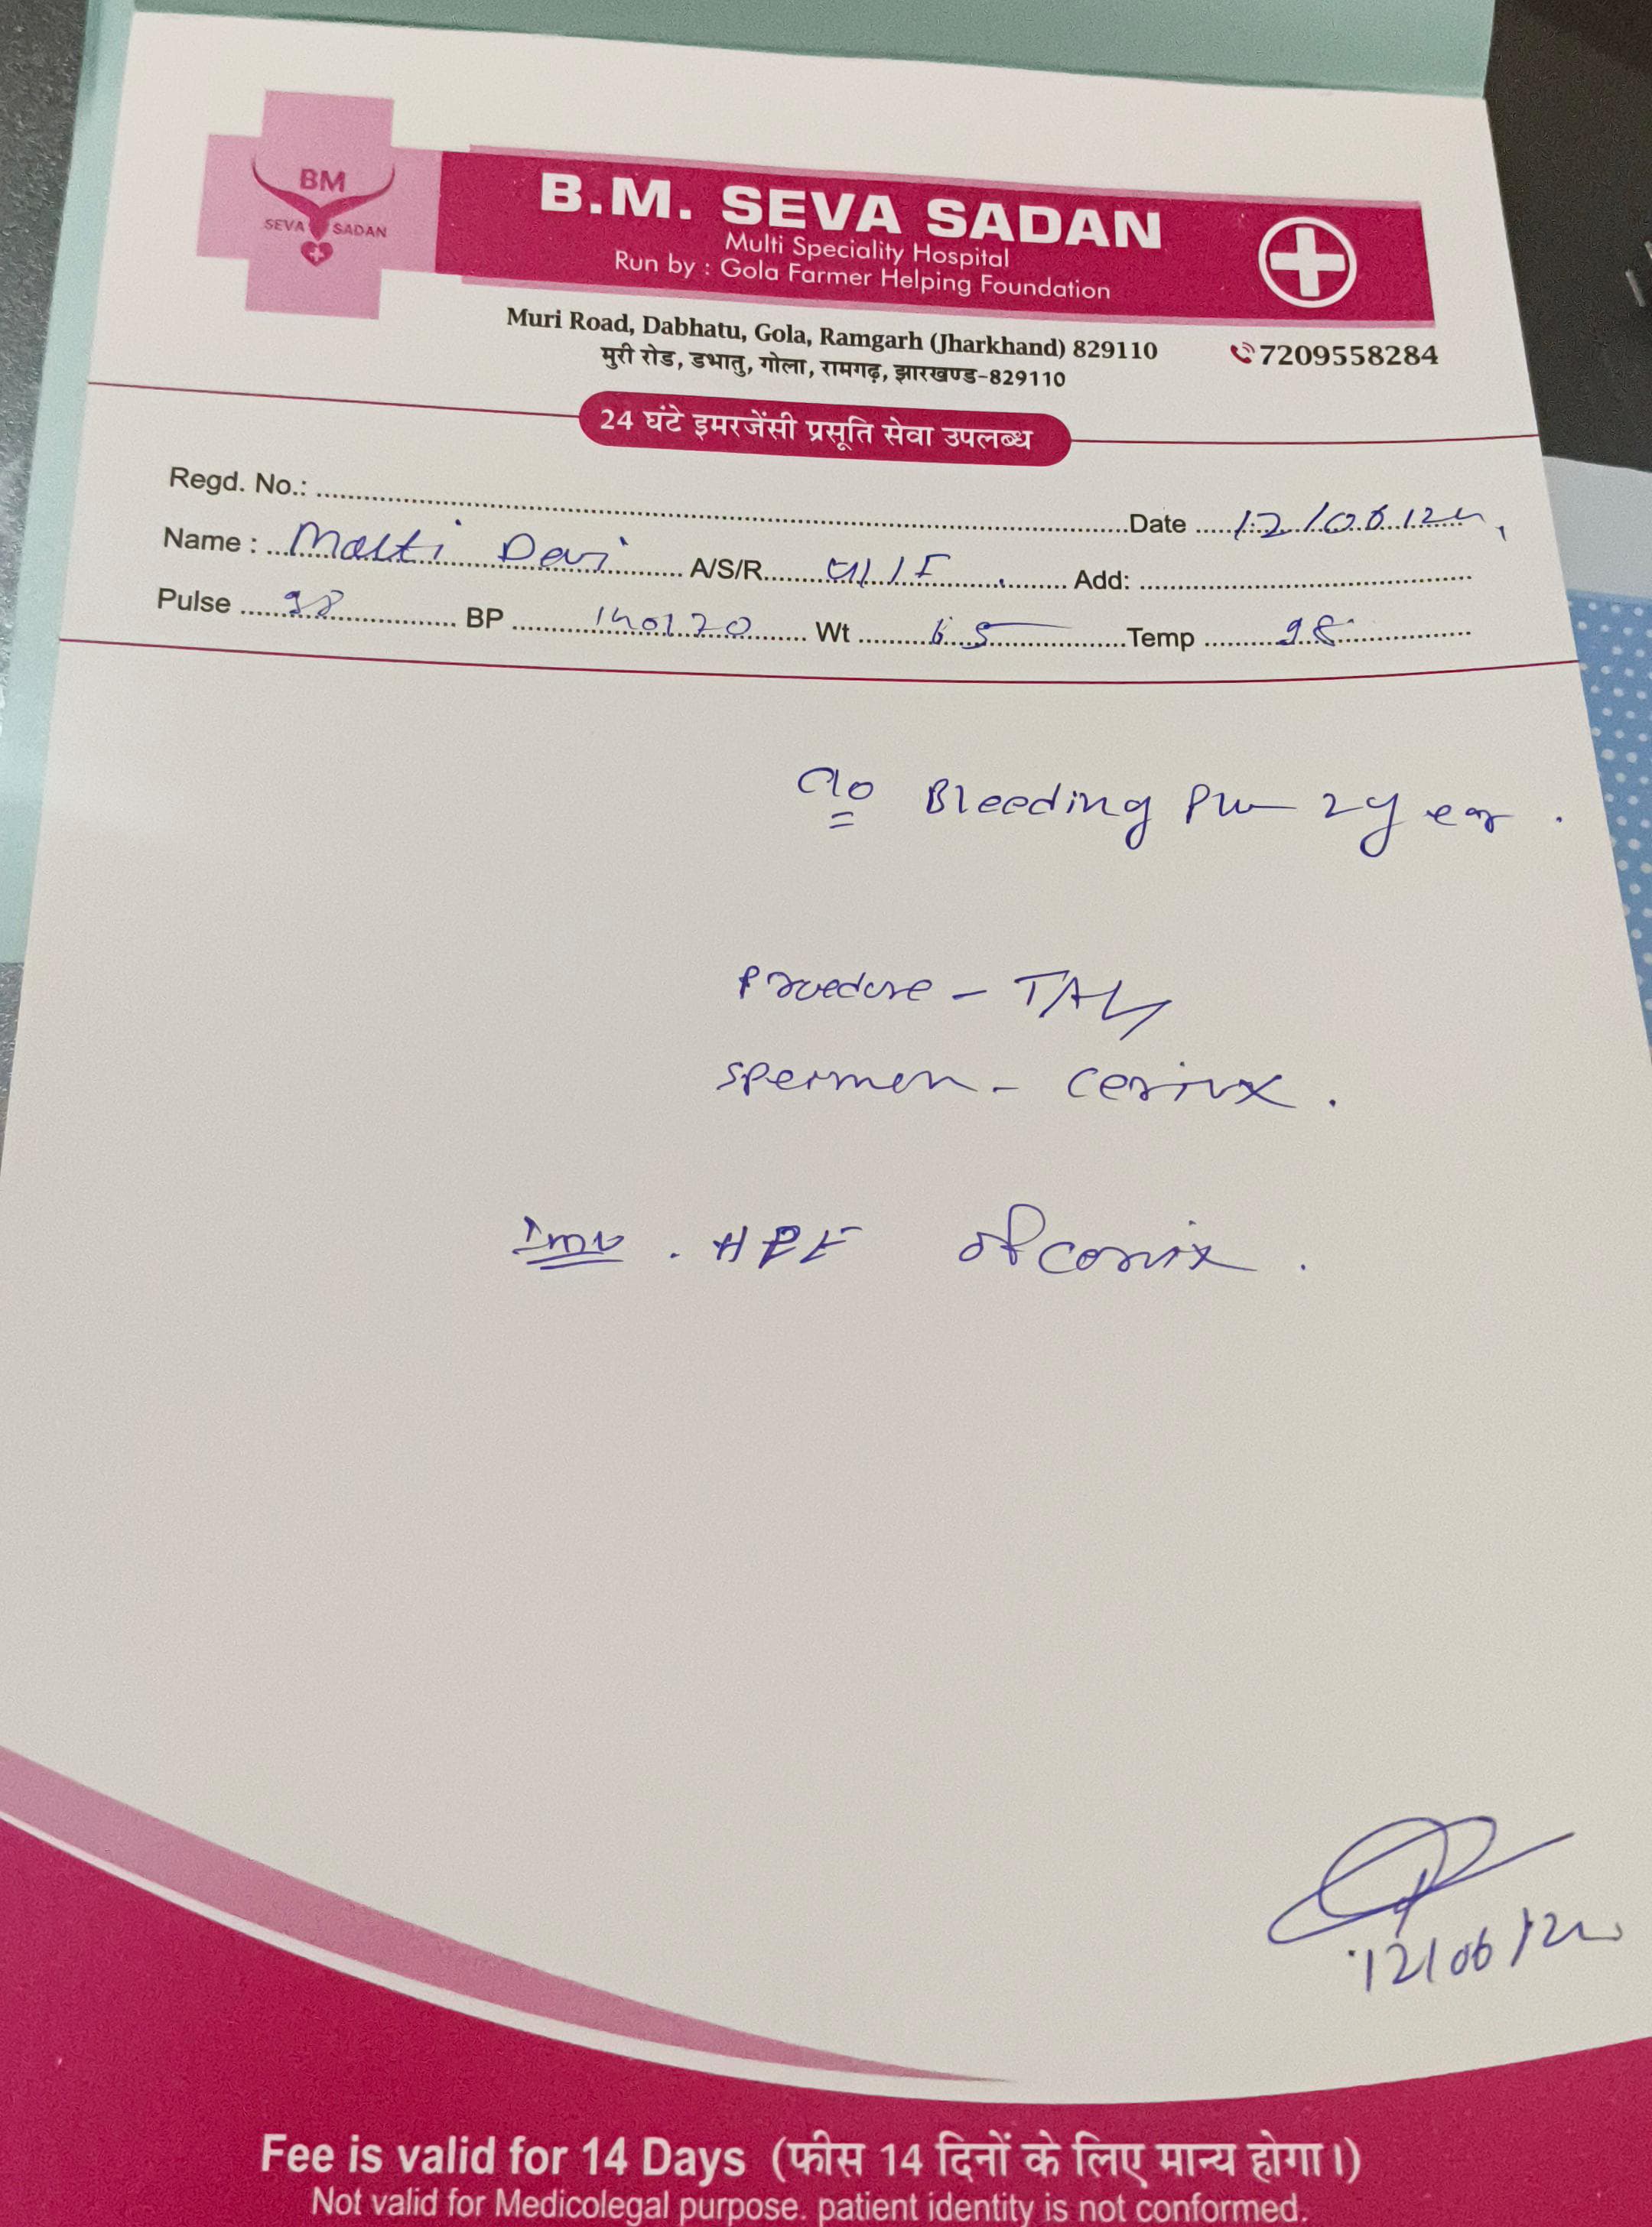 BM
SEVA SADAN
B.M. SEVA SADAN
Multi Speciality Hospital
Run by : Gola Farmer Helping Foundation
Muri Road, Dabhatu, Gola, Ramgarh (Jharkhand) 829110
मुरी रोड, डभातु, गोला, रामगढ़, झारखण्ड-829110
7209558284
24 घंटे इमरजेंसी प्रसूति सेवा उपलब्ध
Regd. No.: Date 12/06/24
Name : Malti Devi A/S/R Add:
Pulse 98 BP 140/70 Wt 65 Temp 98
c/o Bleeding PV 2 year .
Procedure - TAH
Spermen - cervix .
Inv . HPE of cervix .
12/06/24
Fee is valid for 14 Days (फीस 14 दिनों के लिए मान्य होगा।)
Not valid for Medicolegal purpose. patient identity is not conformed.